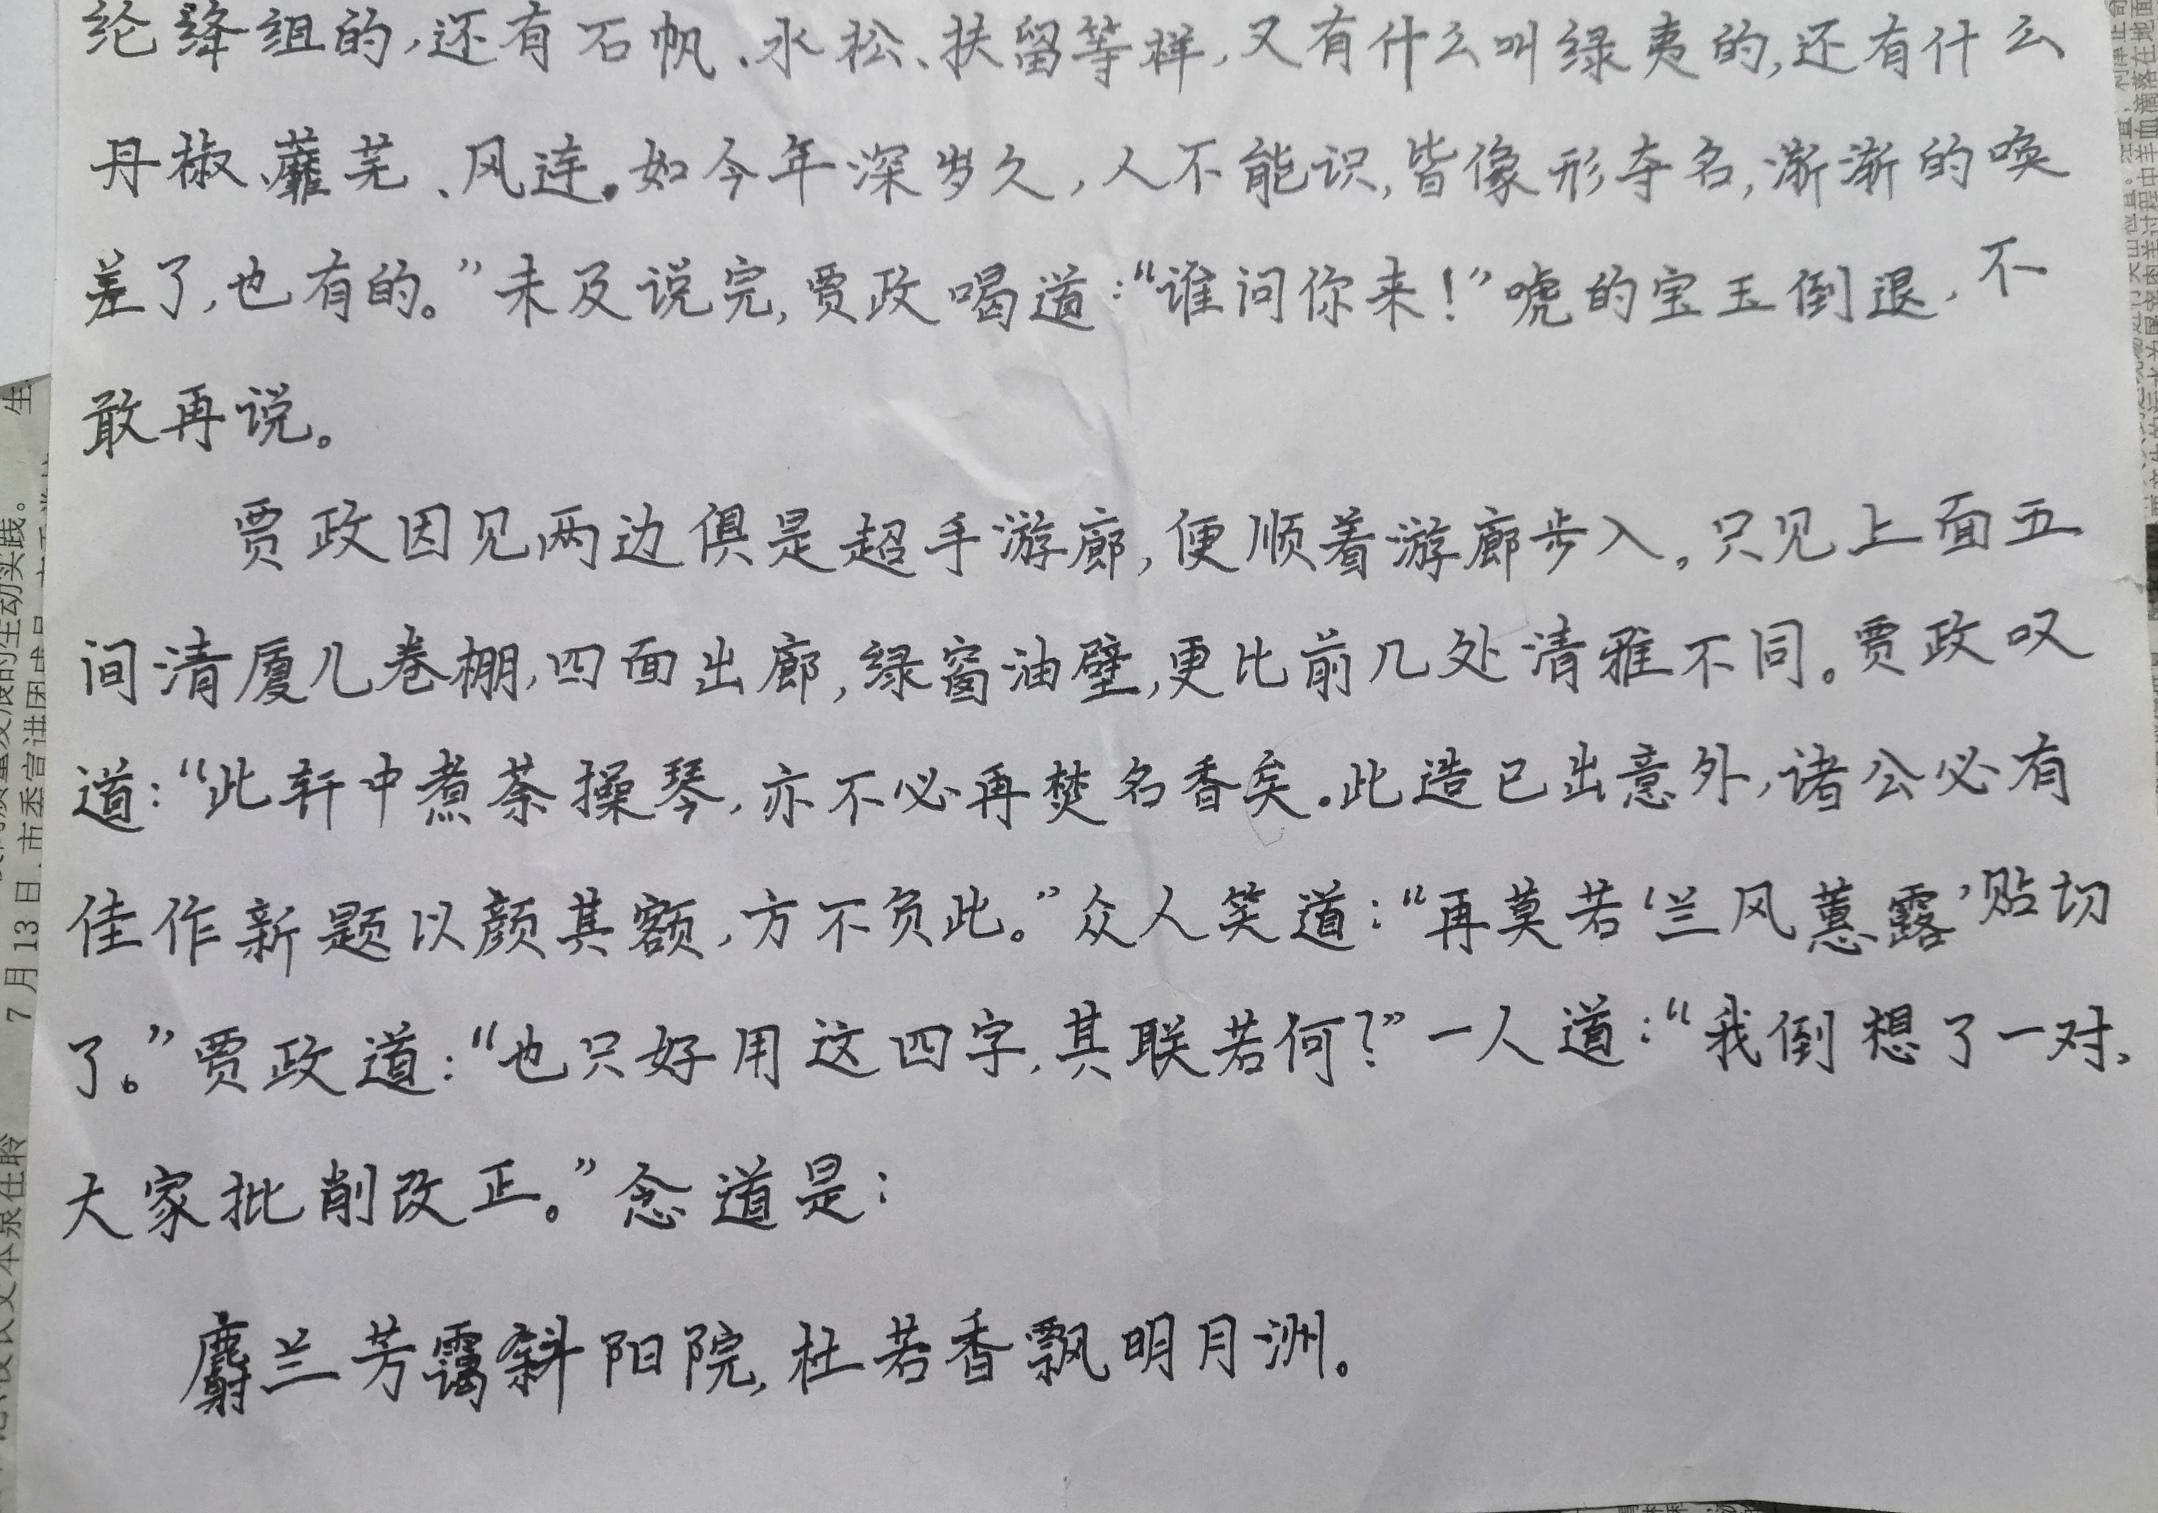 纶绛组的,还有石帆、水松、扶留等样,又有什么叫绿夷的,还有什么
丹椒、蘼芜、风连。如今年深岁久,人不能识,皆像形夺名,渐渐的唤
差了,也有的。”未及说完,贾政喝道:“谁问你来!”唬的宝玉倒退,不
敢再说。
贾政因见两边俱是超手游廊,便顺着游廊步入。只见上面五
间清厦儿卷棚,四面出廊,绿窗油壁,更比前几处清雅不同。贾政叹
道:“此轩中煮茶操琴,亦不必再焚名香矣。此造已出意外,诸公必有
佳作新题以颜其额,方不负此。”众人笑道:“再莫若‘兰风蕙露’贴切
了。”贾政道:“也只好用这四字,其联若何?”一人道:“我倒想了一对,
大家批削改正。”念道是:
麝兰芳霭斜阳院,杜若香飘明月洲。
生
7月13日,市委宣讲团